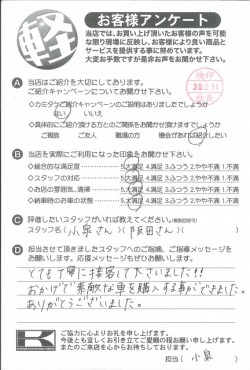 軽
お客様アンケート
当店では、お買い上げ頂いたお客様の声を可能な
限り現場に反映し、お客様により良い商品と
サービスを提供する事に努めています。
大変お手数ですが是非お声をお聞かせ下さい。
検印
社長
A 当店はご紹介を大切にしております。
ご紹介キャンペーンについてお聞かせ下さい。
◇カミタケご紹介キャンペーンのご説明はありましたでしょうか
はい いいえ
◇具体的にご紹介頂ける方とのご関係をお聞かせ頂けますでしょうか
ご親族 ご友人 職場の方 機会があれば紹介したい
B 当店を実際にご利用になった印象をお聞かせ下さい。
◇総合的な満足度 5.大満足 4.満足 3.ふつう 2.やや不満 1.不満
◇スタッフの対応 5.大満足 4.満足 3.ふつう 2.やや不満 1.不満
◇お店の雰囲気、清掃 5.大満足 4.満足 3.ふつう 2.やや不満 1.不満
◇納車時のお車の状態 5.大満足 4.満足 3.ふつう 2.やや不満 1.不満
C 評価したいスタッフがいれば教えてください。(複数回答可)
スタッフ名 ( 小泉さん ) ( 阪田さん )
D 担当させて頂きましたスタッフへのご指摘、ご指導メッセージを
お願いします。応援メッセージもぜひお願いします。
とても丁寧に接客して下さいました!!
おかげで素敵な車を購入する事ができました。
ありがとうございました。
ご協力に心よりお礼を申し上げます。
今後とも宜しくお引き立てご愛顧の程お願い申し上げます。
またのご来店を心からお待ちしております。
担当 ( 小泉 )